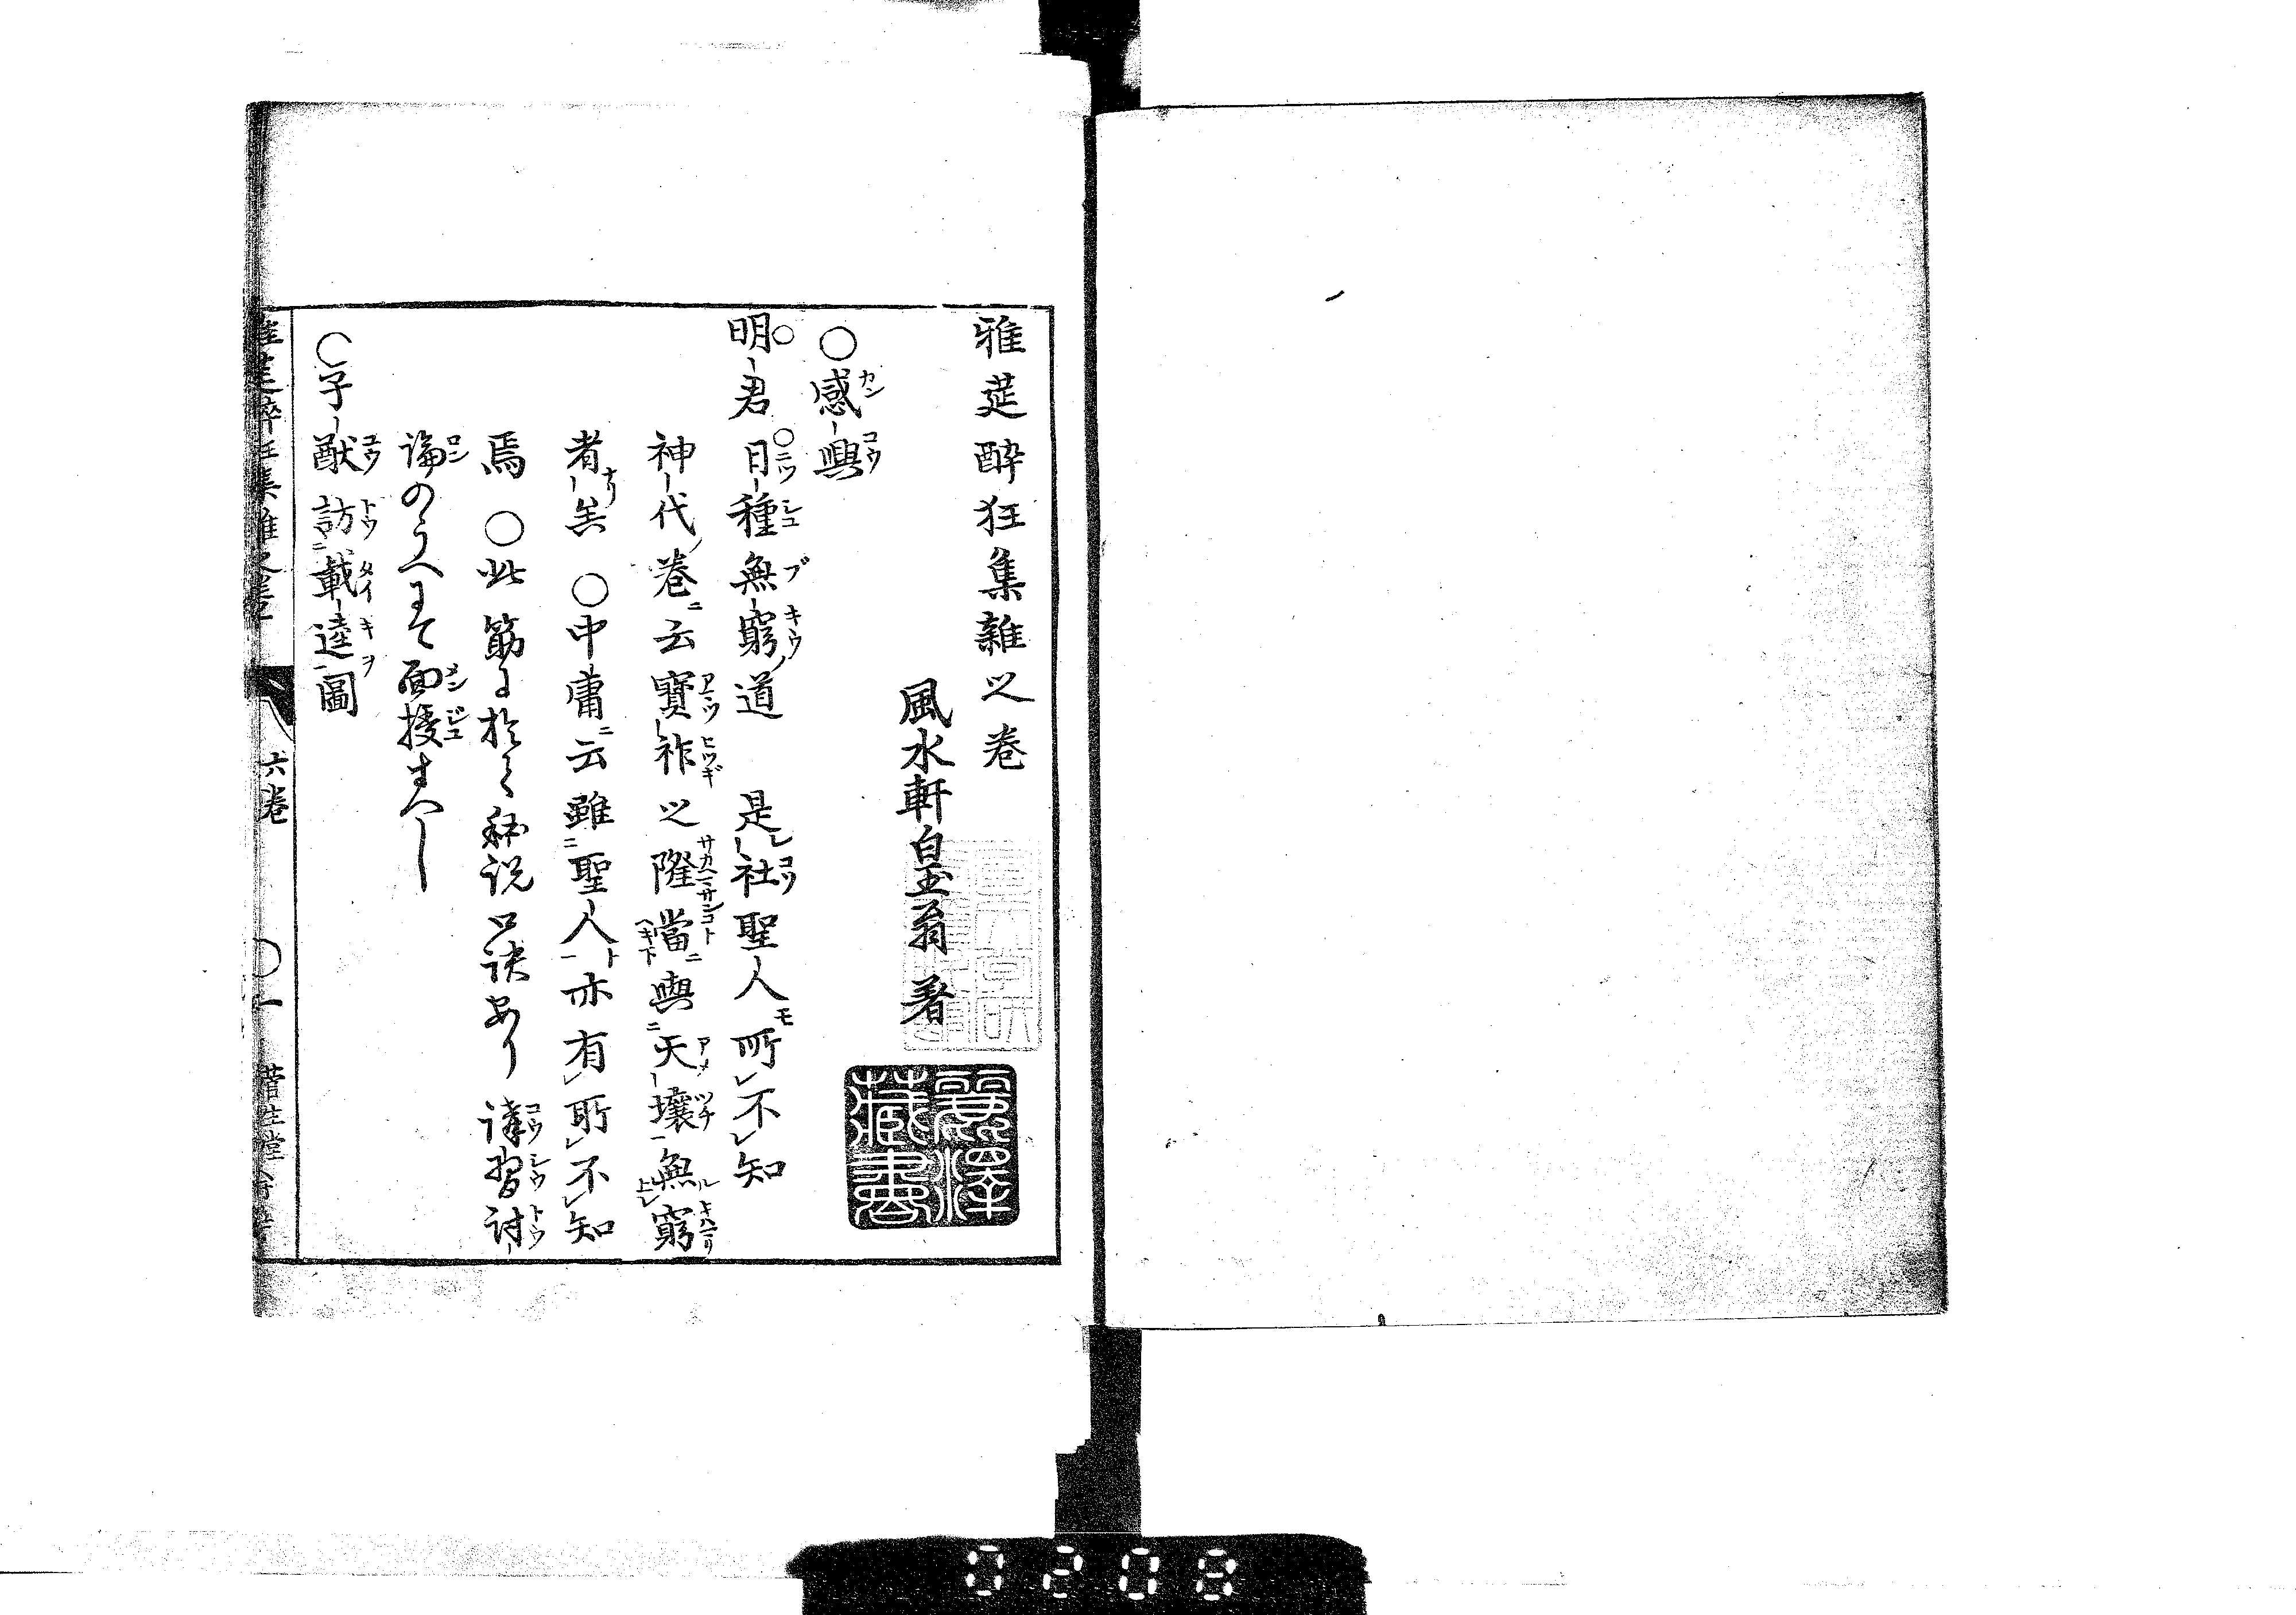 雅莚酔狂集雑之巻
風水軒白玉翁 著
○感興
明君 日種無窮道 是社聖人所不知
神代巻云寶祚之隆當與天壌無窮
者矣 ○中庸云雖聖人亦有所不知
焉 ○此筋に於て秘説口訣あり 講習討
論のうへにて面授すへし
○子猷訪戴逵圖
六巻
一
藏書
0208